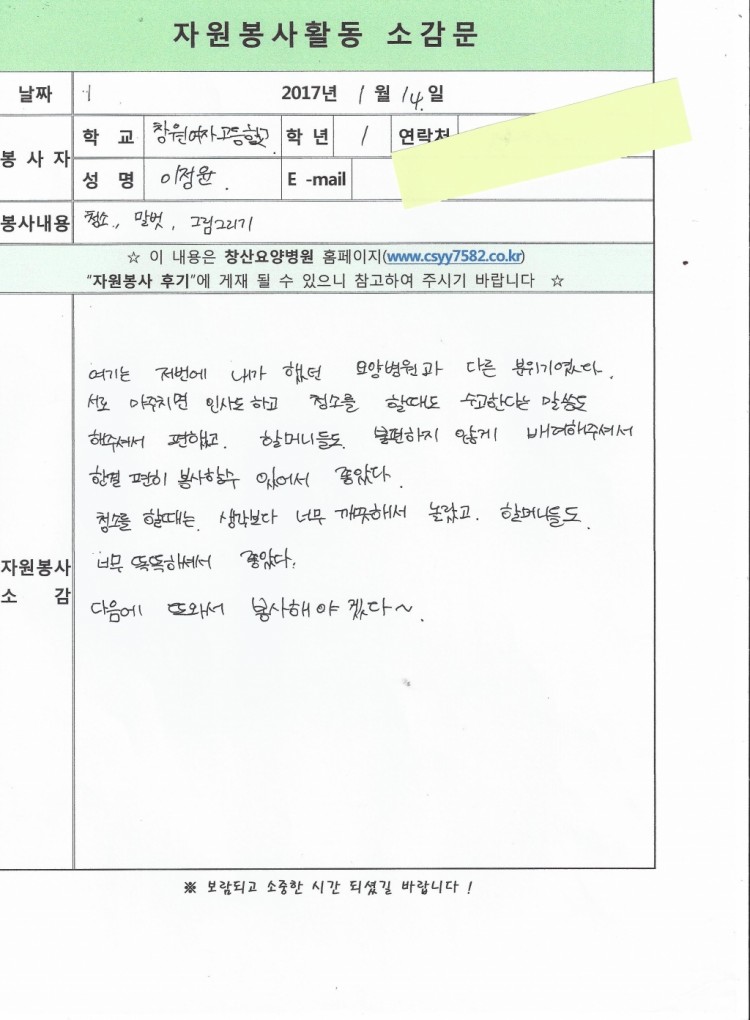 자원봉사활동 소감문
날짜 1 2017년 1월 14일
봉사자 학교 창원여자고등학교 학년 1 연락처
성명 이정윤 E-mail
봉사내용 청소, 말벗, 그림그리기
☆ 이 내용은 창산요양병원 홈페이지(www.csyy7582.co.kr)
"자원봉사 후기"에 게재 될 수 있으니 참고하여 주시기 바랍니다 ☆
자원봉사
소 감
여기는 저번에 내가 했던 요양병원과 다른 분위기였다.
서로 마주치면 인사도 하고 청소를 할때도 수고한다는 말씀도
해주셔서 편했고. 할머니들도 불편하지 않게 배려해주셔서
한결 편히 봉사할수 있어서 좋았다.
청소를 할때는 생각보다 너무 깨끗해서 놀랐고. 할머니들도
너무 똑똑하셔서 좋았다.
다음에 또와서 봉사해야겠다~.
※ 보람되고 소중한 시간 되셨길 바랍니다!